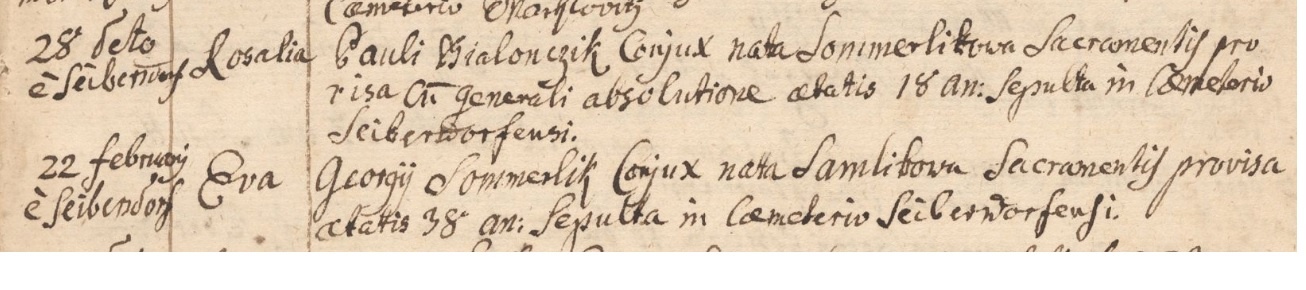 Cæmeterio Marklovitz
28 deto
è Seiberdorf
Rosalia
Pauli Bialonczik Conjux nata Sommerlikowa Sacramentis pro
visa Cū generali absolutione ætatis 18 an: sepulta in Cæmeterio
Seiberdorfensi.
22 februarij
è Seiberdorf
Eva
Georgij Sommerlik Conjux nata Samlikowa Sacramentis provisa
ætatis 38 an: sepulta in Cæmeterio Seiberdorfensi.